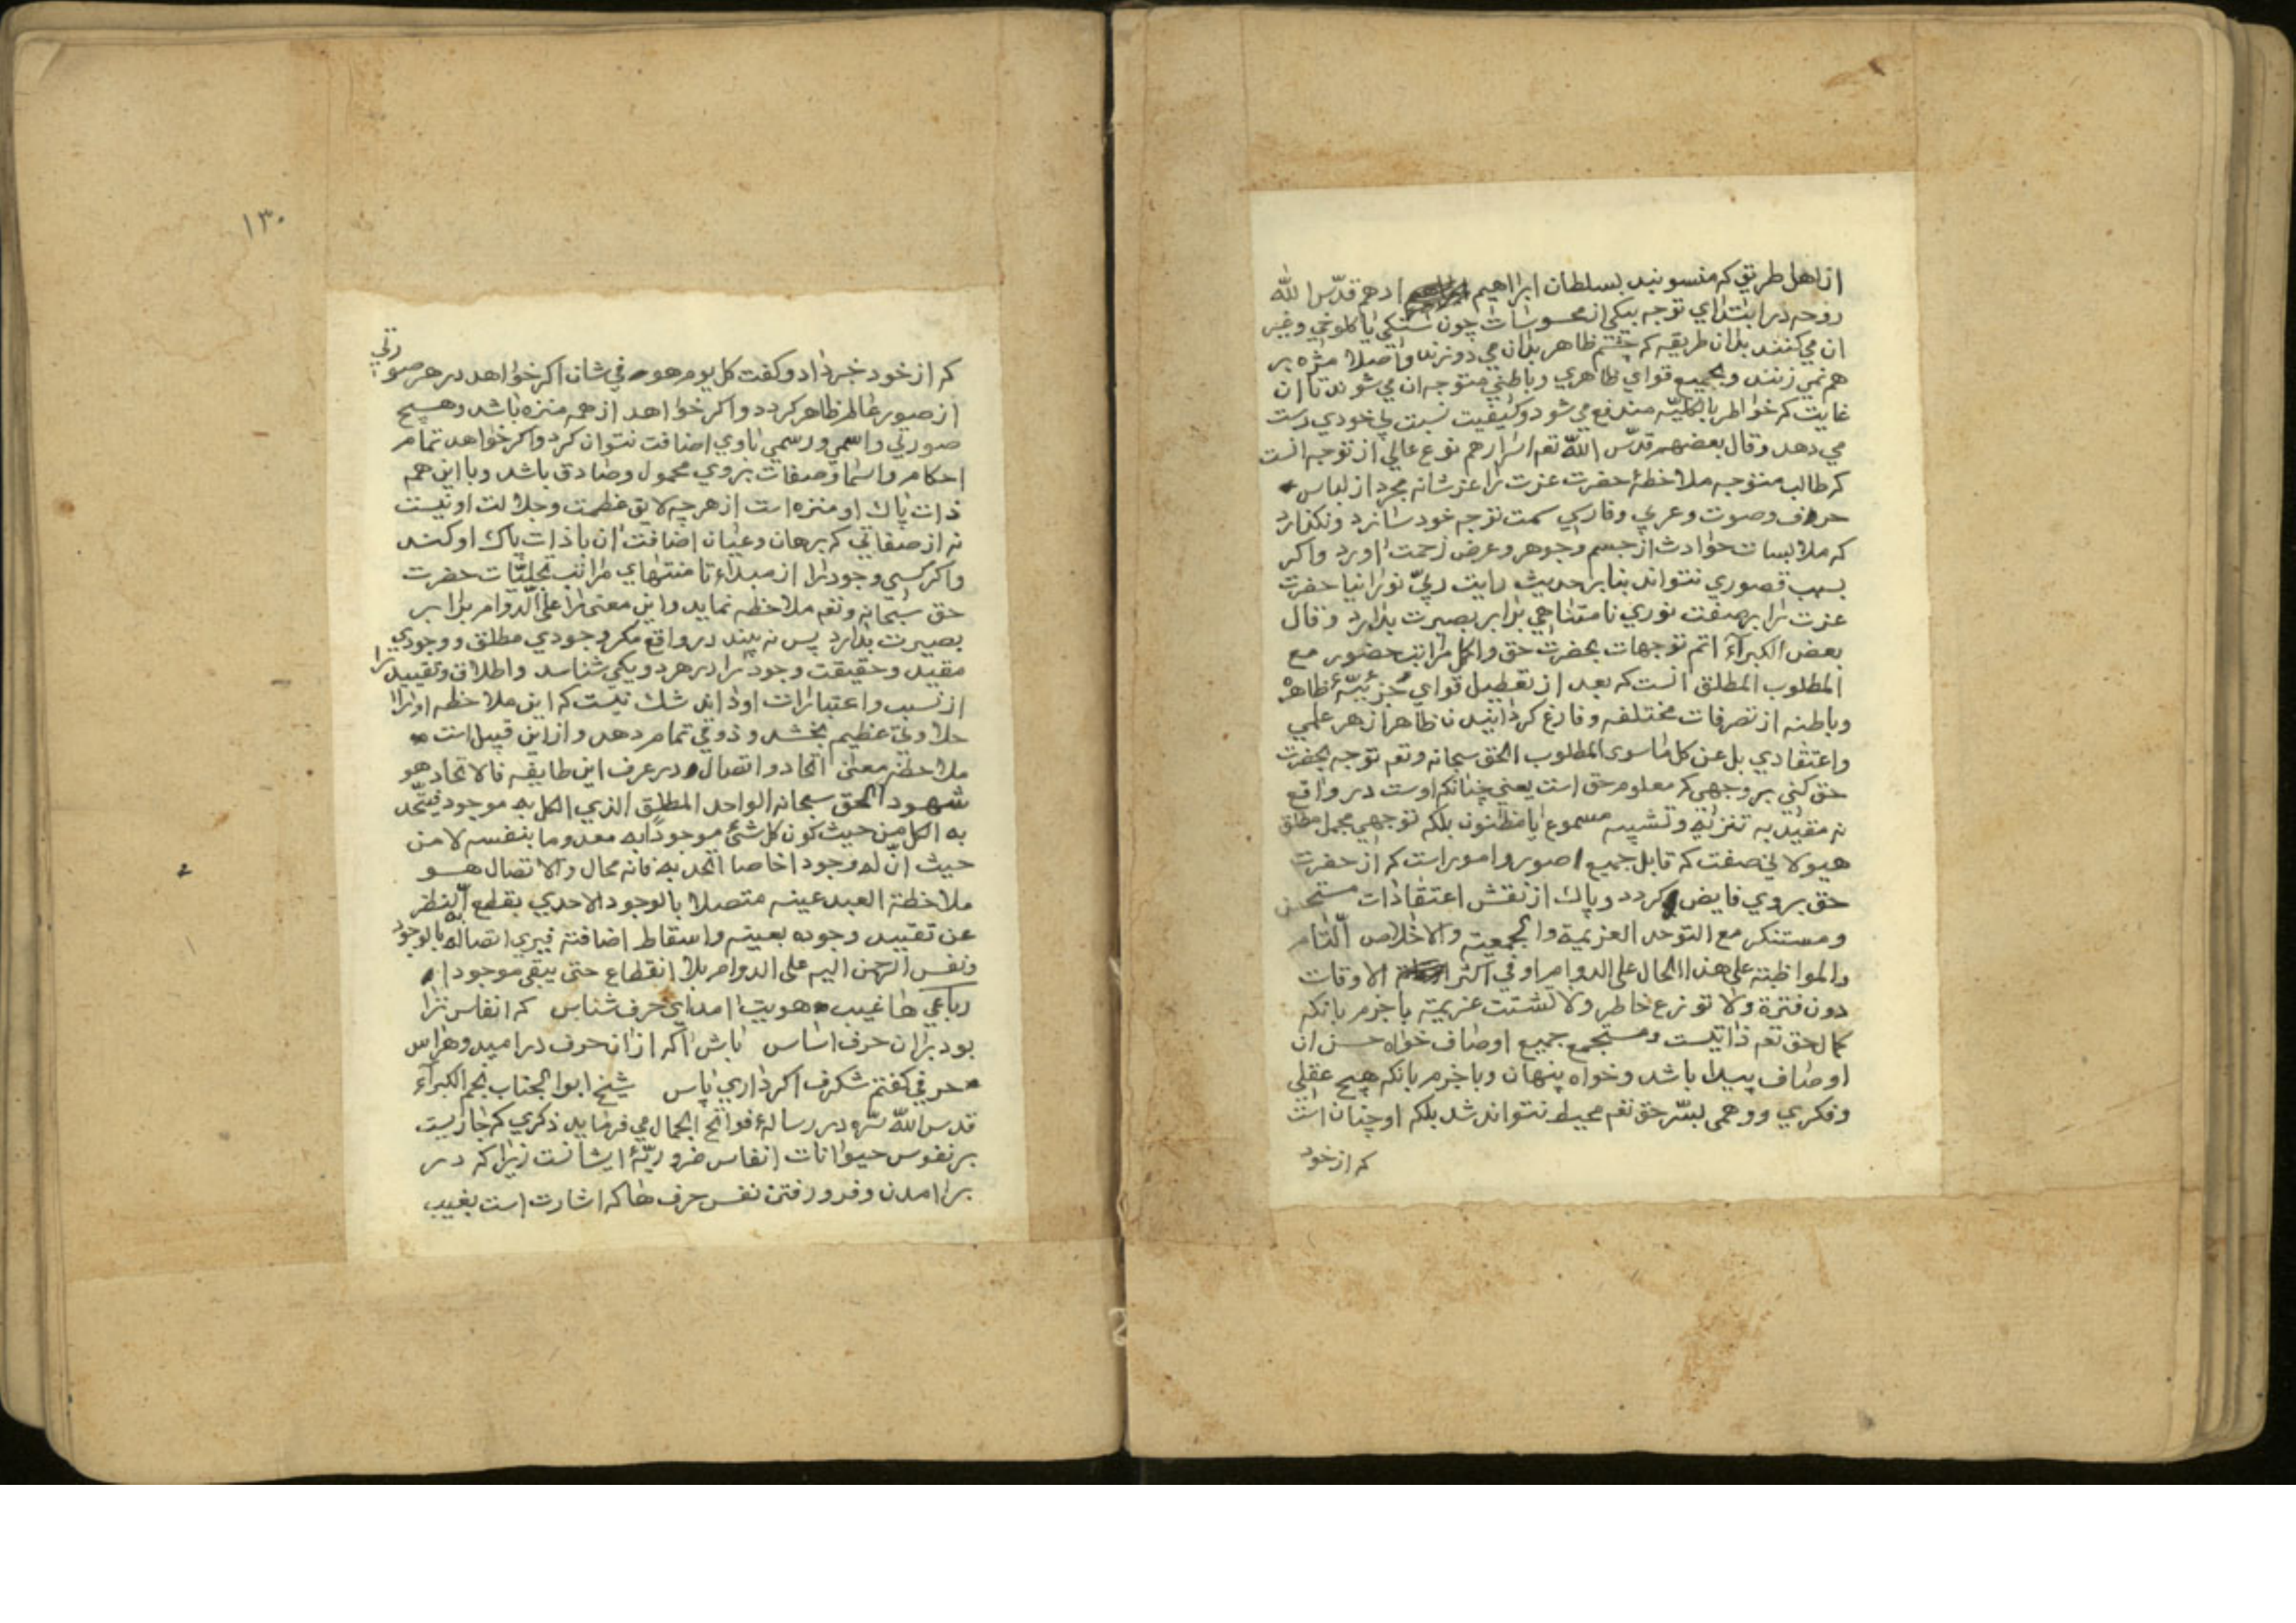 از اهل طریق که منسوبند بسلطان ابراهیم ادهم قدّس الله
روحه در ابتدای توجه بیکی از محسوسات چون سنکی یا کلوخی وغیر
ان می کنند بدان طریقه که چشم ظاهر بدان می دوزند واصلا مژه بر
هم نمی زنند وبجمیع قوای ظاهری وباطنی متوجه ان می شوند تا ان
غایت که خواطر بالکلیّه مندفع می شود وکیفیت نسبت بی خودی دست
می دهد وقال بعضهم قدّس الله تعم اسرارهم نوع عالی از توجه انست
که طالب متوجه ملاحظهٔ حضرت عزت را عز شانه مجرد از لباس
حرف وصوت وعربی وفارسی سمت توجه خود سازد ونکذارد
که ملابسات حوادث از جسم وجوهر وعرض زحمت اورد واکر
بسبب قصوری نتواند بنابر حدیث رایت ربیّ نورانیا حضرت
عزت را بر صفت نوری نامتناهی برابر بصیرت بدارد وقال
بعض الکبرآء اتم توجهات بحضرت حق واکمل مراتب حضور مع
المطلوب المطلق انست که بعد از تعطیل قوای جزئیّهٔ ظاهره
وباطنه از تصرفات مختلفه وفارغ کردانیدن ظاهر از هر علمی
واعتقادی بل عن کل ماسوی المطلوب الحق سبحانه وتعم توجه بحضرت
حق کنی بر وجهی که معلوم حق است یعنی چنانکه اوست در واقع
نه مقید به تنزیه وتشبیه مسموع یا مظنون بلکه توجهی مجمل مطلق
هیولانی صفت که قابل جمیع صور وامور است که از حضرت
حق بروی فایض کردد وپاک از نقش اعتقادات مستحسن
ومستنکر مع التوحد العزیمة والجمعیة والاخلاص التّام
والمواظبة علی هذا الحال علی الدوام او فی اکثر الاوقات
دون فترة ولا توزع خاطر ولا تشتت عزیمة باجزم بانکه
کمال حق تعم ذاتیست ومستجمع جمیع اوصاف خواه حسن ان
اوصاف پیدا باشد وخواه پنهان وباجزم بانکه هیچ عقلی
وفکری ووهمی بسّر حق تعم محیط نتواند شد بلکه او چنان است
که از خود
۱۳۰
که از خود خبر داد وکفت کل یوم هو فی شان اکر خواهد در هر صورتی
از صور عالم ظاهر کردد واکر خواهد از همه منزه باشد وهیچ
صورتی واسمی ورسمی باوی اضافت نتوان کرد واکر خواهد تمام
احکام واسما وصفات بروی محمول وصادق باشد وبا این همه
ذات پاک او منزه است از هر چه لایق عظمت وجلالت او نیست
نه از صفاتی که برهان وعیان اضافت ان با ذات پاک او کند
واکر کسی وجود را از مبداء تا منتهای مراتب تجلیّات حضرت
حق سبحانه وتعم ملاحظه نماید واین معنی را علی الدّوام برابر
بصیرت بدارد پس نه بیند در واقع مکر وجودی مطلق ووجودی
مقید وحقیقت وجود را در هر دو یکی شناسد واطلاق وتقیید را
از نسب واعتبارات او داند شک نیست که این ملاحظه او را
حلاوتی عظیم بخشد وذوقی تمام دهد واز این قبیل است
ملاحظهٔ معنی اتحاد واتصال در عرف این طایفه فالاتحاد هو
شهود الحق سبحانه الواحد المطلق الذی الکل به موجود فیتّحد
به الکل من حیث کون کل شئ موجودًا به معدوما بنفسه لا من
حیث انّ له وجودا خاصا اتحد به فانه محال والاتصال هو
ملاحظة العبد عینه متصلا بالوجود الاحدی بقطع النّظر
عن تقیید وجوده بعینه واسقاط اضافته فیری اتصاله بالوجود
ونفس الرحمن الیه علی الدوام بلا انقطاع حتی یبقی موجودا به
رباعی ها غیب هویت امد ای حرف شناس که انفاس ترا
بود بران حرف اساس باش اکه از ان حرف در امید وهراس
حرفی کفتم شکرف اکر داری پاس شیخ ابوا الجناب نجم الکبرآء
قدس الله سّره در رسالهٔ فواتح الجمال می فرماید ذکری که جاریست
بر نفوس حیوانات انفاس ضروریّهٔ ایشانست زیرا که در
بر امدن وفرو رفتن نفس حرف ها که اشارت است بغیب